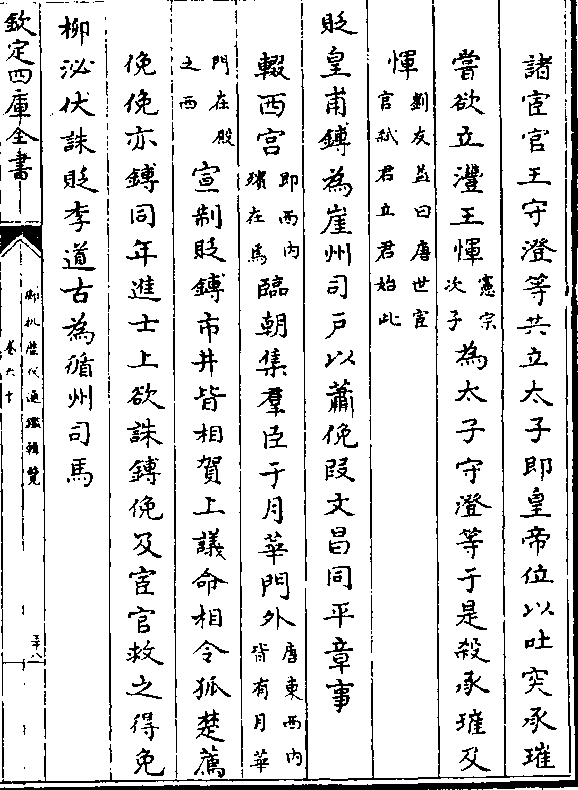 諸宦官王守澄等共立太子即皇帝位以吐突承璀
嘗欲立灃王惲憲宗次子為太子守澄等于是殺承璀及
惲劉友益曰唐世宦官弑君立君始此
貶皇甫鎛為崖州司戶以蕭俛段文昌同平章事
輟西宫即西内殯在焉臨朝集羣臣于月華門外唐東西内皆有月華
門在殿之西宣制貶鎛市井皆相賀上議命相令狐楚薦
俛俛亦鎛同年進士上欲誅鎛俛及宦官救之得免
柳泌伏誅貶李道古為循州司馬
欽定四庫全書
御批歷代通鑑輯覽
卷六十